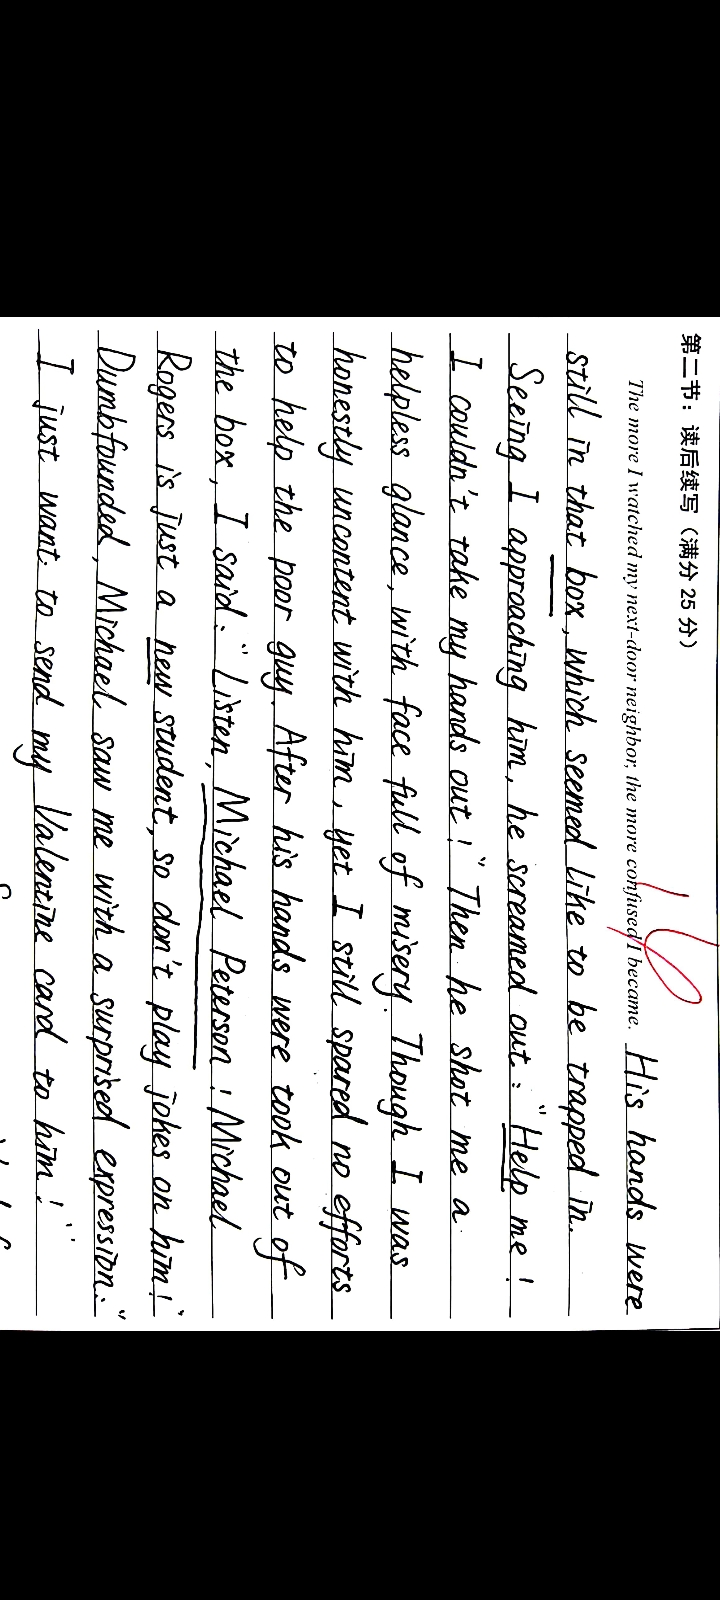 第二节：读后续写（满分 25 分）
The more I watched my next-door neighbor, the more confused I became. His hands were
still in that box, which seemed like to be trapped in.
Seeing I approaching him, he screamed out: "Help me!
I couldn't take my hands out!" Then he shot me a
helpless glance, with face full of misery. Though I was
honestly uncontent with him, yet I still spared no efforts
to help the poor guy. After his hands were took out of
the box, I said: "Listen, Michael Peterson! Michael
Rogers is just a new student, so don't play jokes on him!"
Dumbfounded, Michael saw me with a surprised expression: "
I just want to send my Valentine card to him!"
16